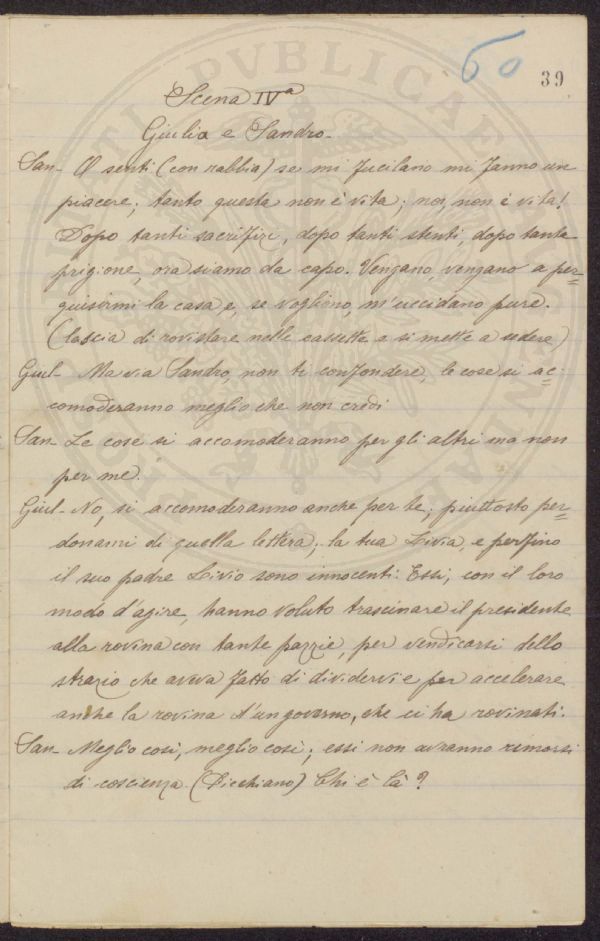 60
39
Scena IVª
Giulia e Sandro -
San - O senti (con rabbia) se mi fucilano mi fanno un
piacere; tanto questa non è vita; no, non è vita!
Dopo tanti sacrifizi, dopo tanti stenti, dopo tanta
prigione, ora siamo da capo. Vengano, vengano a per=
quisirmi la casa e, se vogliono, m'uccidano pure.
(lascia di rovistare nelle cassette e si mette a sedere)
Giul - Ma via Sandro, non ti confondere, le cose si ac=
comoderanno meglio che non credi
San - Le cose si accomoderanno per gli altri ma non
per me.
Giul - No, si accomoderanno anche per te; piuttosto per=
donami di quella lettera; la tua Livia, e perfino
il suo padre Livio sono innocenti. Essi, con il loro
modo d'agire, hanno voluto trascinare il presidente
alla rovina con tante pazzie, per vendicarsi dello
strazio che aveva fatto di dividervi e per accelerare
anche la rovina d'un governo, che ci ha rovinati.
San - Meglio così, meglio così; essi non avranno rimorsi
di coscienza. (Picchiano) Chi è là?